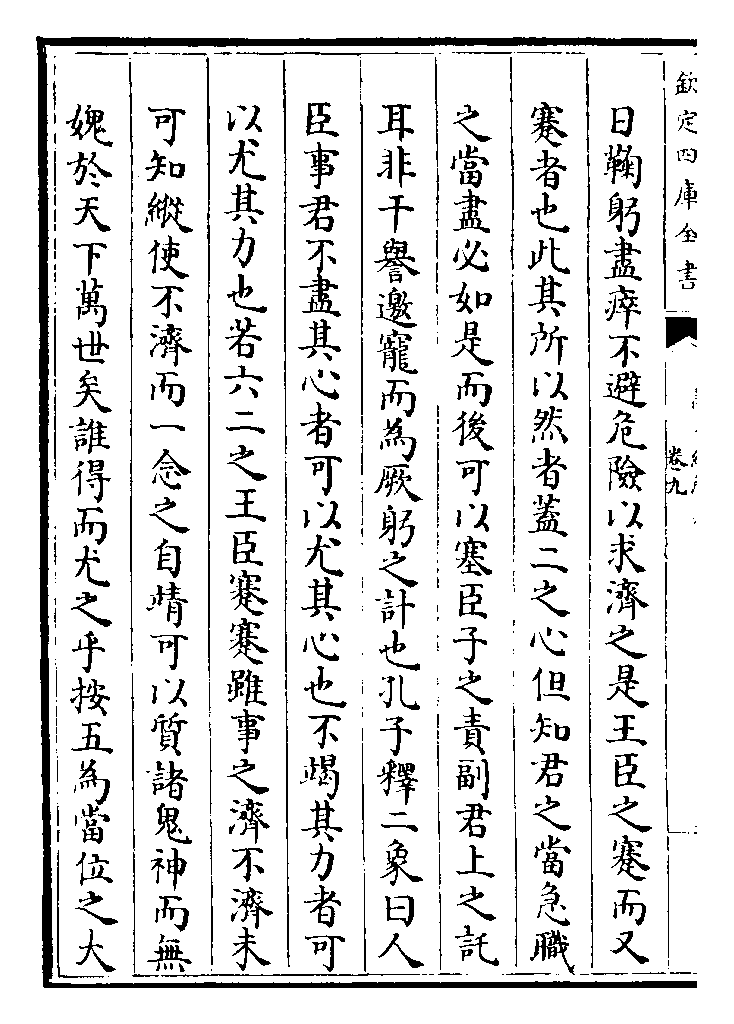 欽定四庫全書
卷九
日鞠躬盡瘁不避危險以求濟之是王臣之蹇而又
蹇者也此其所以然者蓋二之心但知君之當急職
之當盡必如是而後可以塞臣子之責副君上之託
耳非干譽邀寵而為厥躬之計也孔子釋二象曰人
臣事君不盡其心者可以尤其心也不竭其力者可
以尤其力也若六二之王臣蹇蹇雖事之濟不濟未
可知縱使不濟而一念之自靖可以質諸鬼神而無
媿於天下萬世矣誰得而尤之乎按五為當位之大